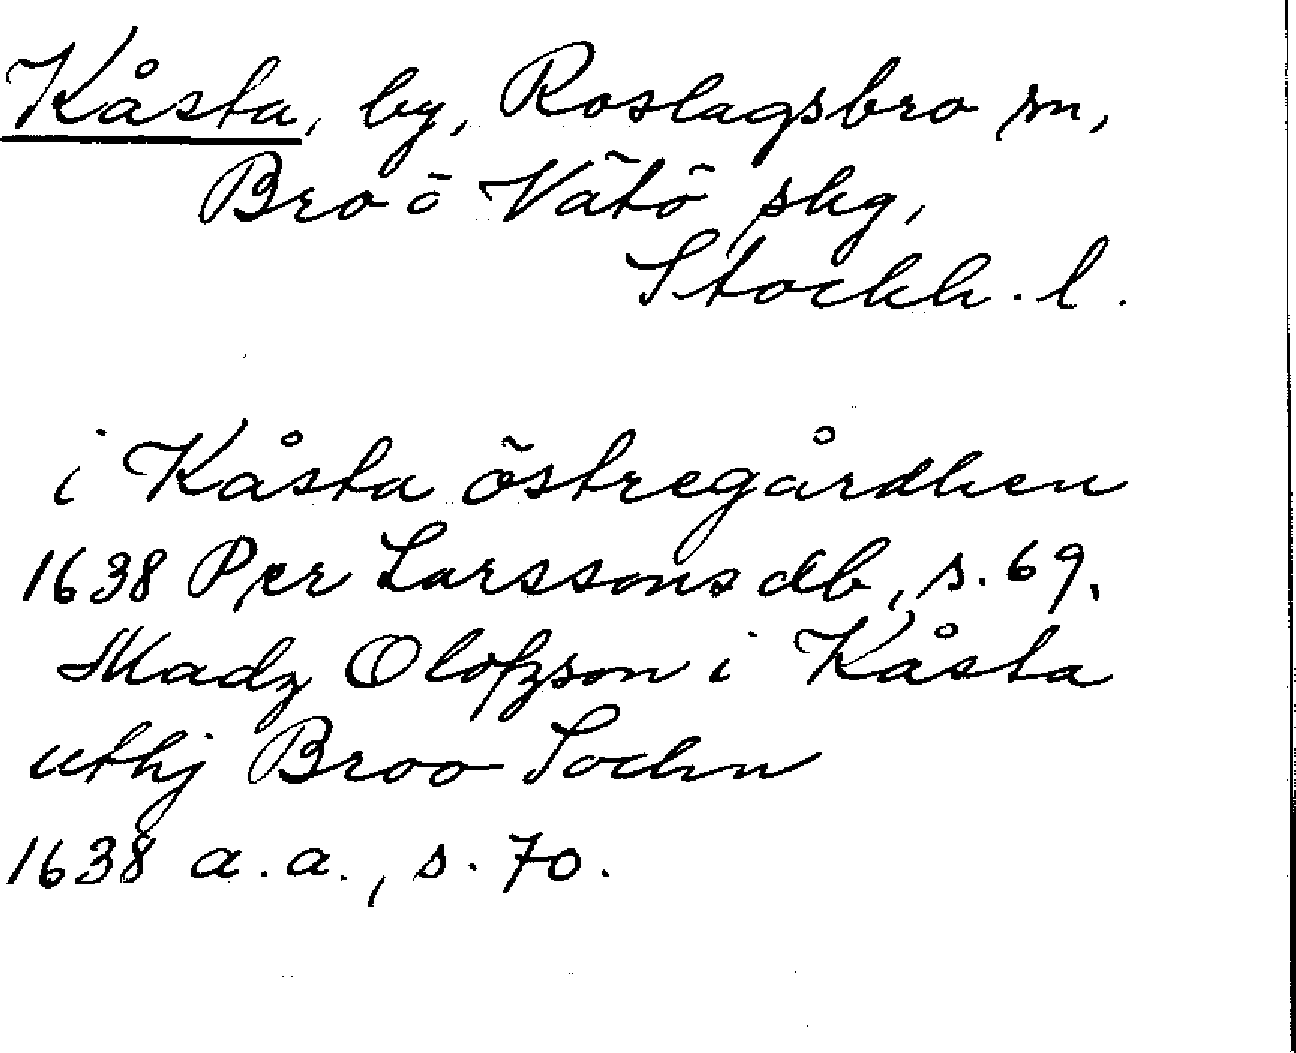 Kåsta, by, Roslagsbro sn,
Bro ō Vätö skg,
Stockh. l.
i Kåsta östregårdhen
1638 Per Larssons db, s. 69.
Madz Olofzson i Kåsta
uthj Broo Sochn
1638 a.a., s. 70.